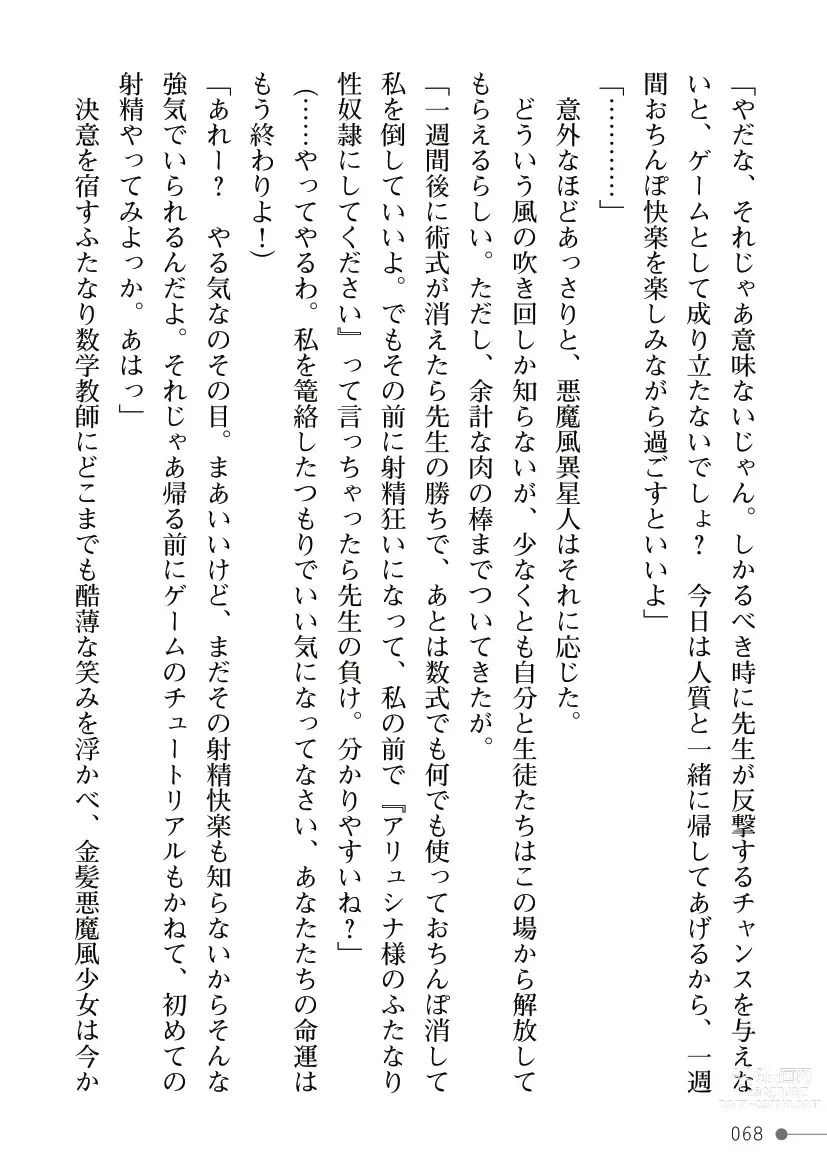 「やだな、それじゃあ意味ないじゃん。しかるべき時に先生が反撃するチャンスを与えな
いと、ゲームとして成り立たないでしょ？　今日は人質と一緒に帰してあげるから、一週
間おちんぽ快楽を楽しみながら過ごすといいよ」
「…………」
意外なほどあっさりと、悪魔風異星人はそれに応じた。
どういう風の吹き回しか知らないが、少なくとも自分と生徒たちはこの場から解放して
もらえるらしい。ただし、余計な肉の棒までついてきたが。
「一週間後に術式が消えたら先生の勝ちで、あとは数式でも何でも使っておちんぽ消して
私を倒していいよ。でもその前に射精狂いになって、私の前で『アリュシナ様のふたなり
性奴隷にしてください』って言っちゃったら先生の負け。分かりやすいね？」
（……やってやるわ。私を篭絡したつもりでいい気になってなさい、あなたたちの命運は
もう終わりよ！）
「あれー？　やる気なのその目。まあいいけど、まだその射精快楽も知らないからそんな
強気でいられるんだよ。それじゃあ帰る前にゲームのチュートリアルもかねて、初めての
射精やってみよっか。あはっ」
決意を宿すふたなり数学教師にどこまでも酷薄な笑みを浮かべ、金髪悪魔風少女は今か
068